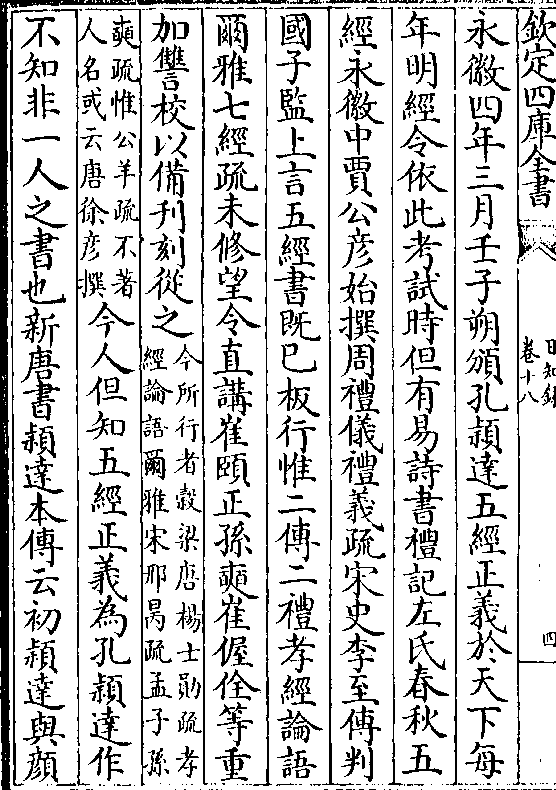 欽定四庫全書
日知録
卷十八
四
永徽四年三月壬子朔頒孔頴達五經正義於天下每
年明經令依此考試時但有易詩書禮記左氏春秋五
經永徽中賈公彦始撰周禮儀禮義疏宋史李至傳判
國子監上言五經書既已板行惟二傳二禮孝經論語
爾雅七經疏未修望令直講崔頤正孫奭崔偓佺等重
加讐校以備刋刻從之
今所行者糓梁唐楊士勛疏孝
經論語爾雅宋邢昺疏孟子孫
奭疏惟公羊疏不著
人名或云唐徐彦撰
今人但知五經正義為孔頴達作
不知非一人之書也新唐書頴達本傳云初頴達與顔